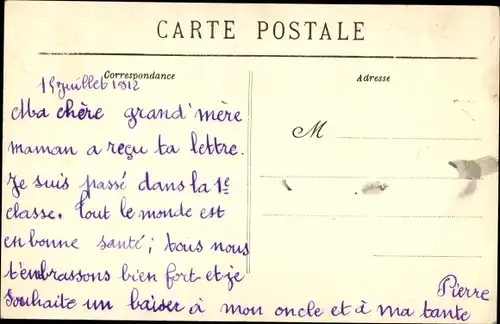 CARTE POSTALE
Correspondance
Adresse
15 juillet 1912
Ma chère grand'mère
maman a reçu ta lettre.
Je suis passé dans la 1e
classe. Tout le monde est
en bonne santé; tous nous
t'embrassons bien fort et je
souhaite un baiser à mon oncle et à ma tante
Pierre
M